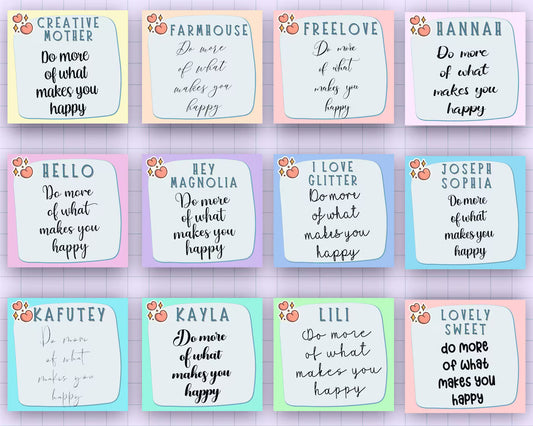 CREATIVE
MOTHER
Do more
of what
makes you
happy
FARMHOUSE
Do more
of what
makes you
happy
FREELOVE
Do more
of what
makes you
happy
HANNAH
Do more
of what
makes you
happy
HELLO
Do more
of what
makes you
happy
HEY
MAGNOLIA
Do more
of what
makes you
happy
I LOVE
GLITTER
Do more
of what
makes you
happy
JOSEPH
SOPHIA
Do more
of what
makes you
happy
KAFUTEY
Do more
of what
makes you
happy
KAYLA
Do more
of what
makes you
happy
LILI
Do more
of what
makes you
happy
LOVELY
SWEET
do more
of what
makes you
happy